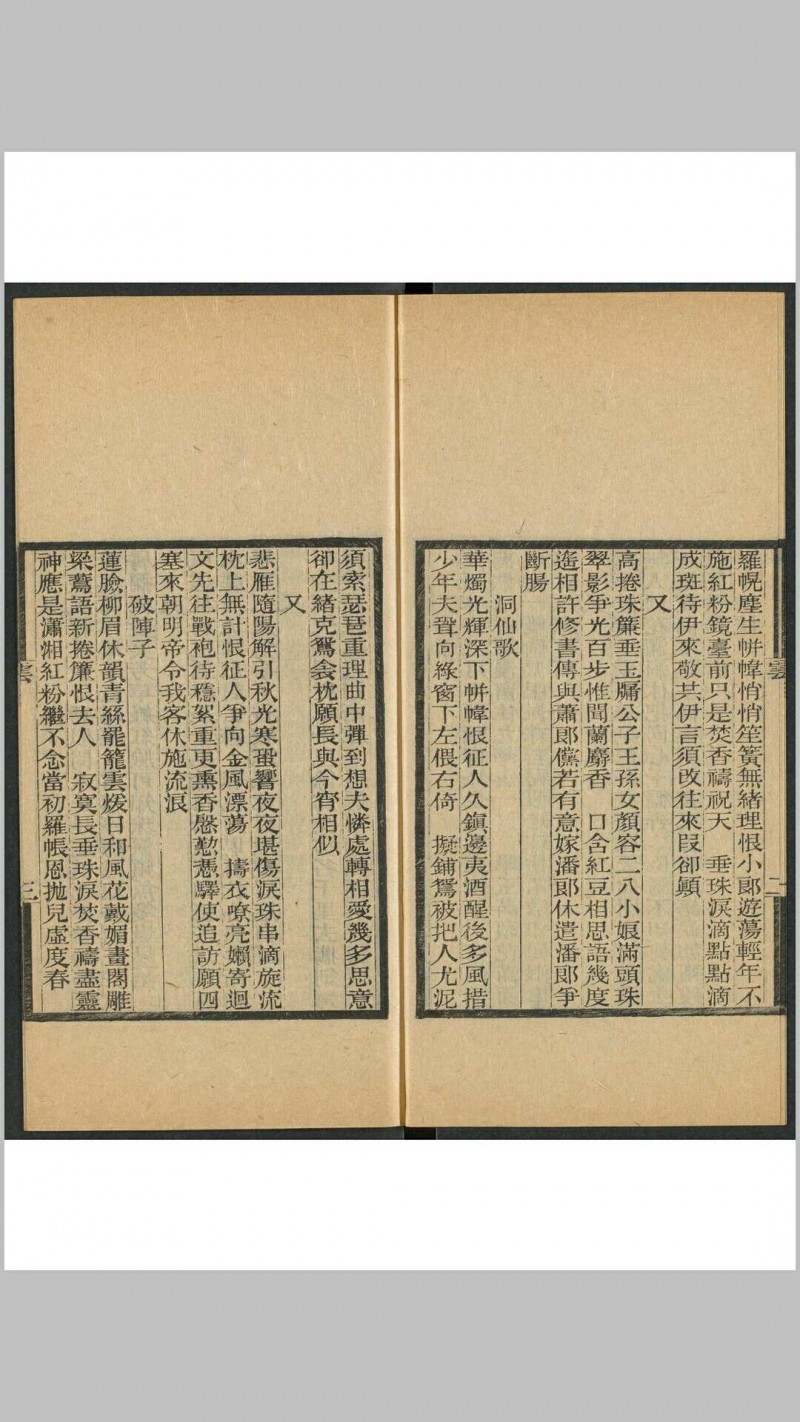 羅幌塵生帡幃悄悄笙簧無緒理恨小郎遊蕩輕年不
施紅粉鏡臺前只是焚香禱祝天　垂珠淚滴點點滴
成斑待伊來敬共伊言須改往來段卻顛
又
高捲珠簾垂玉牖公子王孫女顏容二八小娘滿頭珠
翠影爭光百步惟聞蘭麝香　口含紅豆相思語幾度
遙相許修書傳與蕭郎儻若有意嫁潘郎休遣潘郎爭
斷腸
洞仙歌
華燭光輝深下帡幃恨征人久鎮邊夷酒醒後多風措
少年夫聟向綠窗下左偎右倚　擬鋪鴛被把人尤泥
須索琵琶重理曲中彈到想夫憐處轉相愛幾多思意
卻在緒克鴛衾枕願長與今宵相似
又
悲雁隨陽解引秋光寒蛩響夜夜堪傷淚珠串滴旋流
枕上無計恨征人爭向金風漂蕩　擣衣嘹亮嬾寄迴
文先往戰袍待穩絮重更熏香慇懃憑驛使追訪願四
塞來朝明帝令我客休施流浪
破陣子
蓮臉柳眉休韻青絲罷籠雲煖日和風花戴媚畫閣雕
梁鷰語新捲簾恨去人　寂寞長垂珠淚焚香禱盡靈
神應是瀟湘紅粉繼不念當初羅帳恩拋兒虛度春
雲
二
雲
三